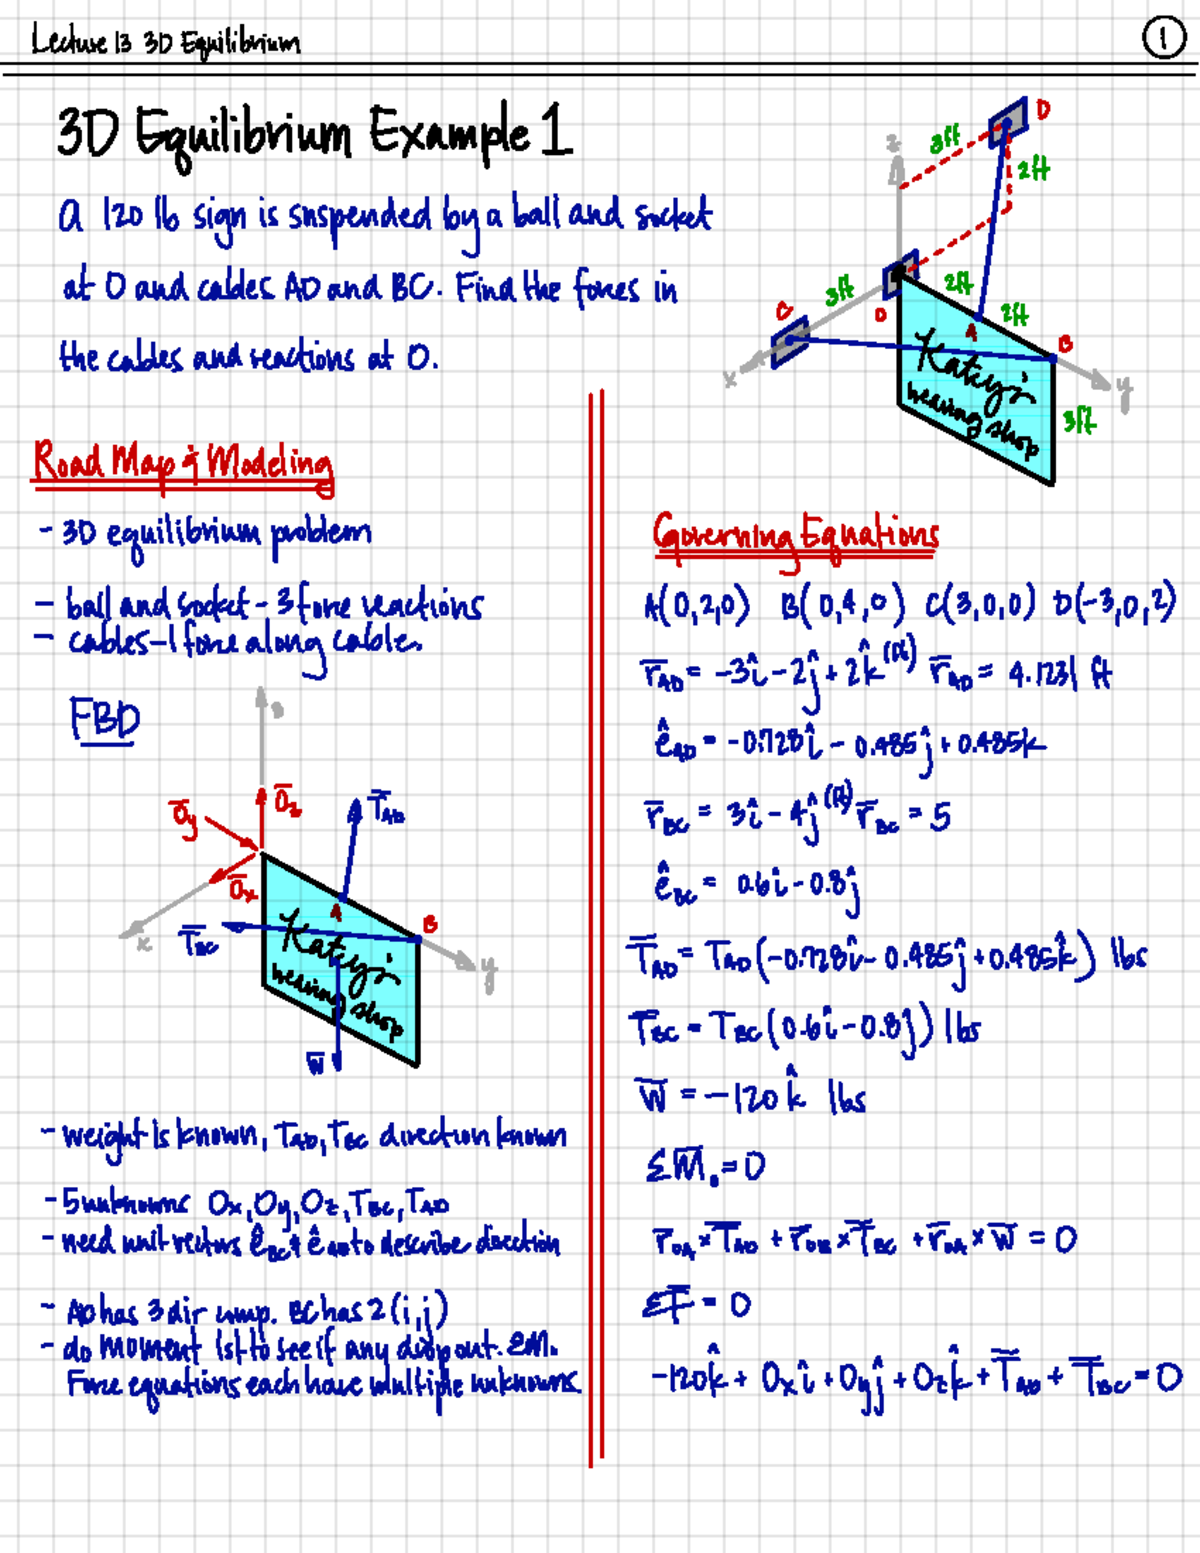 Lecture 13 3D Equilibrium
1
3D Equilibrium Example 1
A 120 lb sign is suspended by a ball and socket
at O and cables AD and BC. Find the forces in
the cables and reactions at O.
D
z
3ft
2ft
3ft
2ft
2ft
C
O
A
B
x
y
3ft
Katey's
weaving shop
Road Map & Modeling
- 3D equilibrium problem
- ball and socket - 3 force reactions
- cables - 1 force along cable.
FBD
z
O̅z
O̅y
T̅AD
O̅x
A
B
x
T̅BC
y
Katey's
weaving shop
W̅
- weight is known, TAD, TBC direction known
- 5 unknowns Ox, Oy, Oz, TBC, TAD
- need unit vectors êBC & êAD to describe direction
- AD has 3 dir comp. BC has 2 (i,j)
- do moment 1st to see if any drop out. ΣMo
Force equations each have multiple unknowns.
Governing Equations
A(0,2,0) B(0,4,0) C(3,0,0) D(-3,0,2)
r̅AD = -3î - 2ĵ + 2k̂ (ft) r̅AD = 4.1231 ft
êAD = -0.728î - 0.485ĵ + 0.485k
r̅BC = 3î - 4ĵ (ft) r̅BC = 5
êBC = 0.6î - 0.8ĵ
T̅AD = TAD(-0.728î - 0.485ĵ + 0.485k̂) lbs
T̅BC = TBC(0.6î - 0.8ĵ) lbs
W̅ = -120k̂ lbs
ΣM̅o = 0
r̅OA × T̅AD + r̅OB × T̅BC + r̅OA × W̅ = 0
ΣF̅ = 0
-120k̂ + Oxî + Oyĵ + Ozk̂ + T̅AD + T̅BC = 0